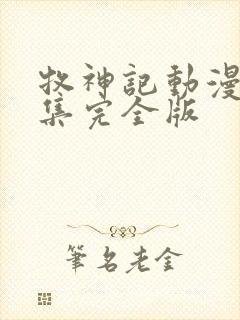 牧神記動漫
集完全版
筆名老金